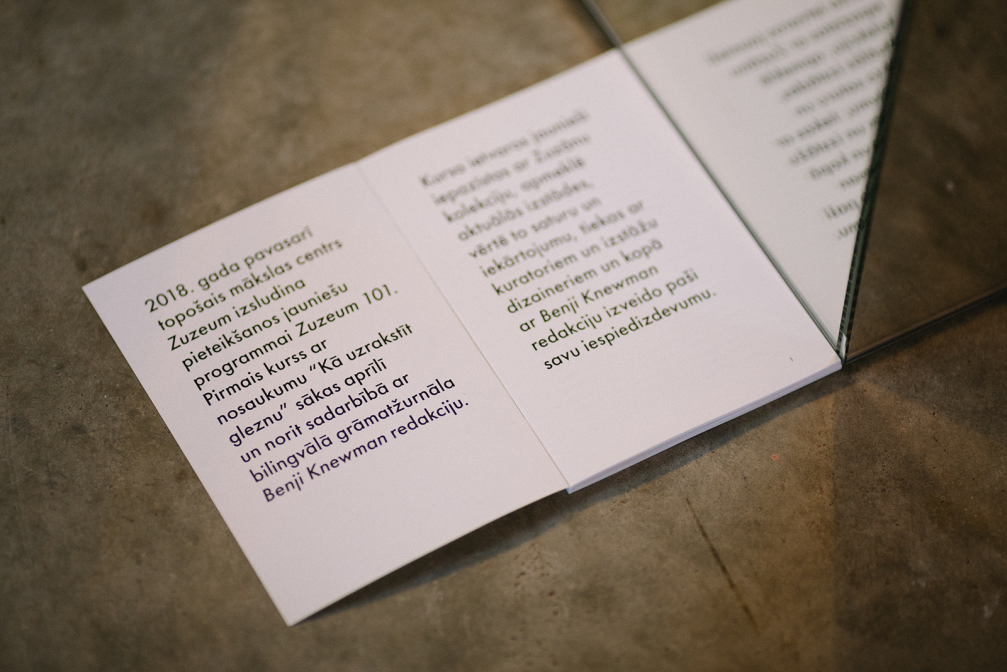 2018. gada pavasarī
topošais mākslas centrs
Zuzeum izsludina
pieteikšanos jauniešu
programmai Zuzeum 101.
Pirmais kurss ar
nosaukumu “Kā uzrakstīt
gleznu” sākas aprīlī
un norit sadarbībā ar
bilingvālā grāmatžurnāla
Benji Knewman redakciju.
Kursa ietvaros jaunieši
iepazīstas ar Zuzānu
kolekciju, apmeklē
aktuālās izstādes,
vērtē to saturu un
iekārtojumu, tiekas ar
kuratoriem un izstāžu
dizaineriem un kopā
ar Benji Knewman
redakciju izveido paši
savu iespieddevumu.